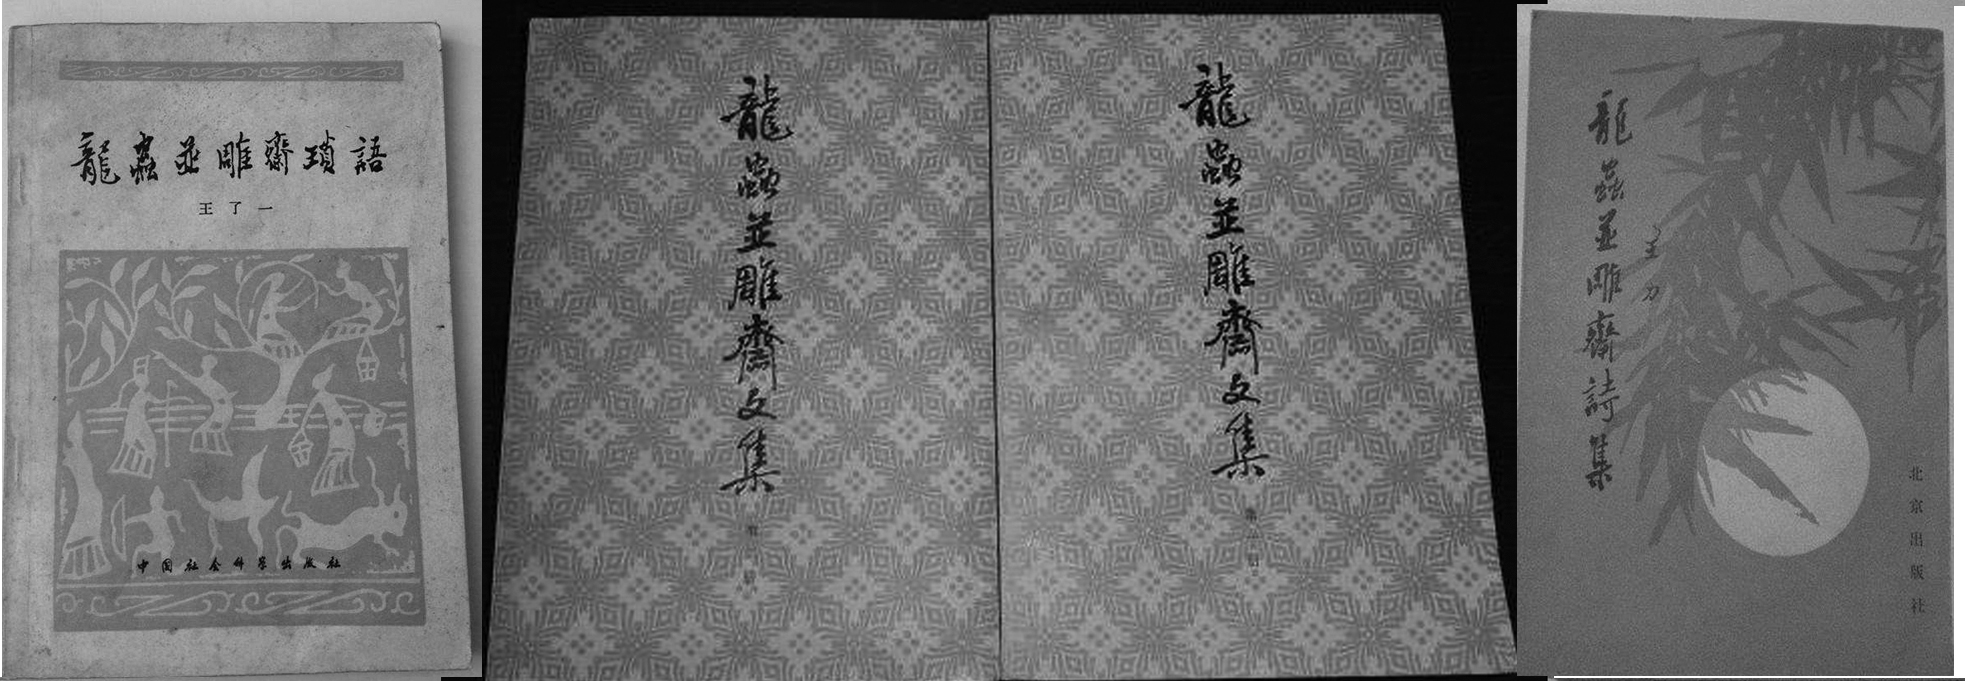 龍蟲並雕齋瑣語
王了一
中国社会科学出版社
龍蟲並雕齋文集
龍蟲並雕齋文集
龍蟲並雕齋詩集
王力
北京出版社